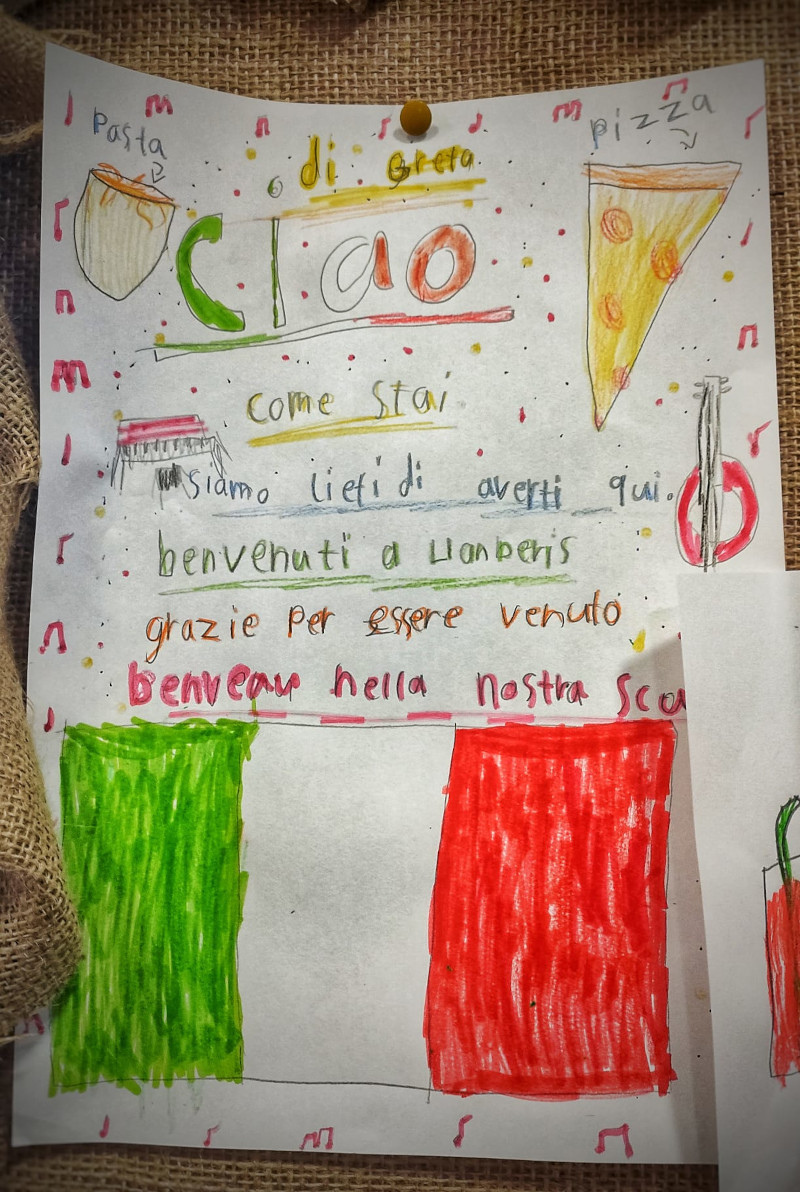 Pasta
pizza
di Greta
Ciao
come stai
siamo lieti di averti qui.
benvenuti a Llanberis
grazie per essere venuto
nella nostra sco